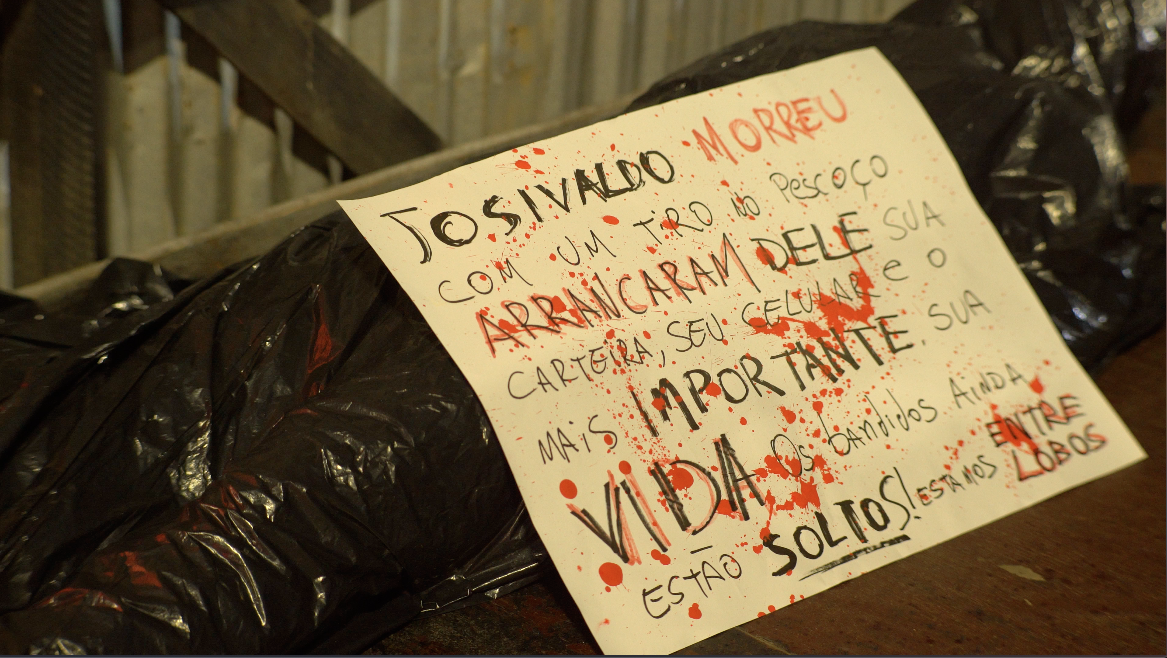 JOSIVALDO MORREU
COM UM TIRO NO PESCOÇO
ARRANCARAM DELE SUA
CARTEIRA, SEU CELULAR e O
MAIS IMPORTANTE, SUA
VIDA Os bandidos AINDA
ESTÃO SOLTOS! ESTAMOS ENTRE
LOBOS